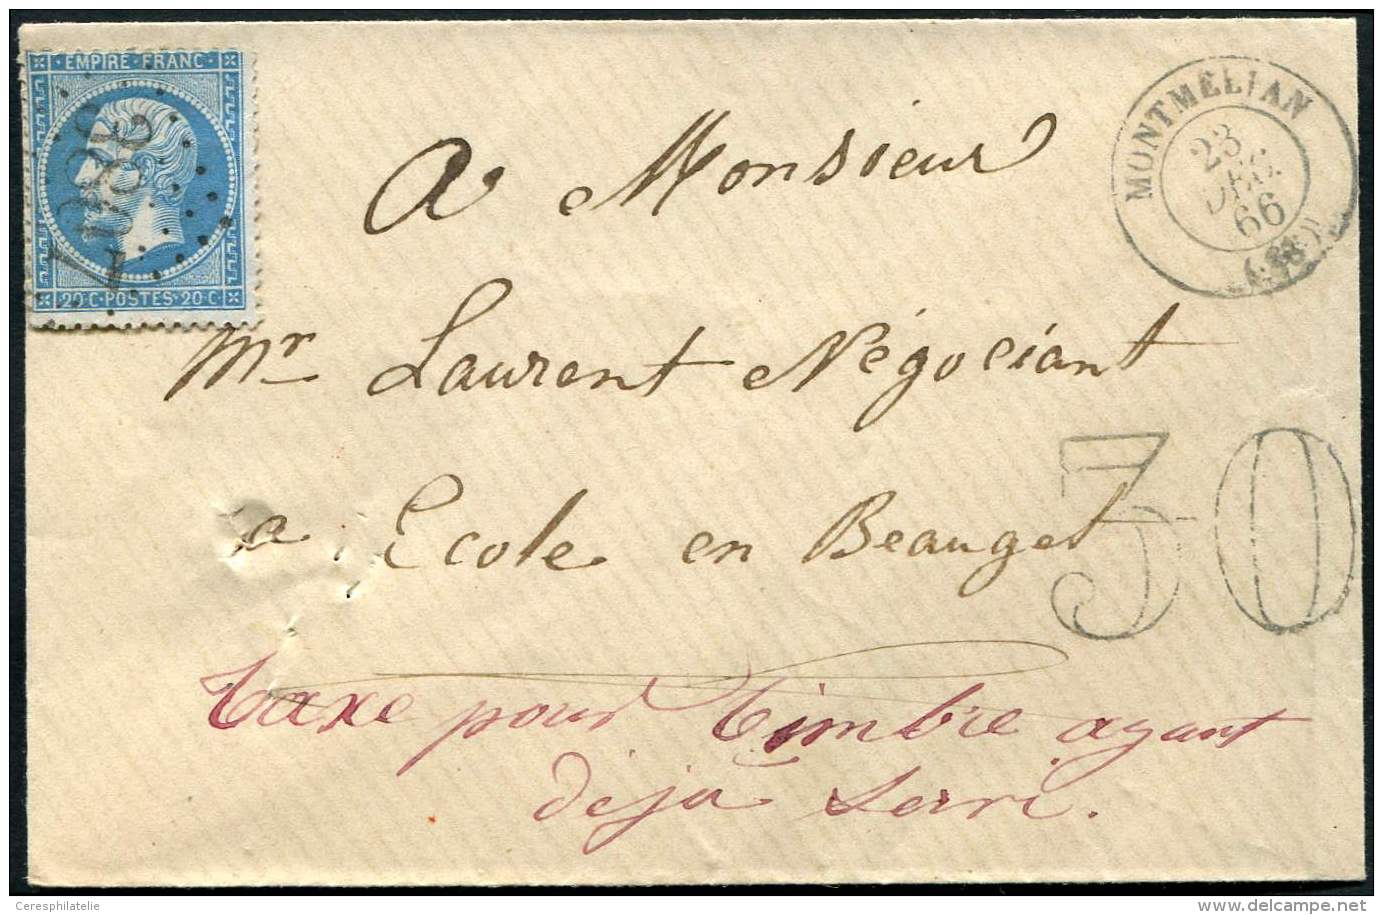 EMPIRE FRANC
3807
20 C POSTES 20 C
MONTMELIAN
23
DEC.
66
(88)
A Monsieur
Mr Laurent Négociant
a Ecole en Beauget
30
taxe pour timbre ayant
déja servi.
Ceresphilatelie
www.delcampe.net